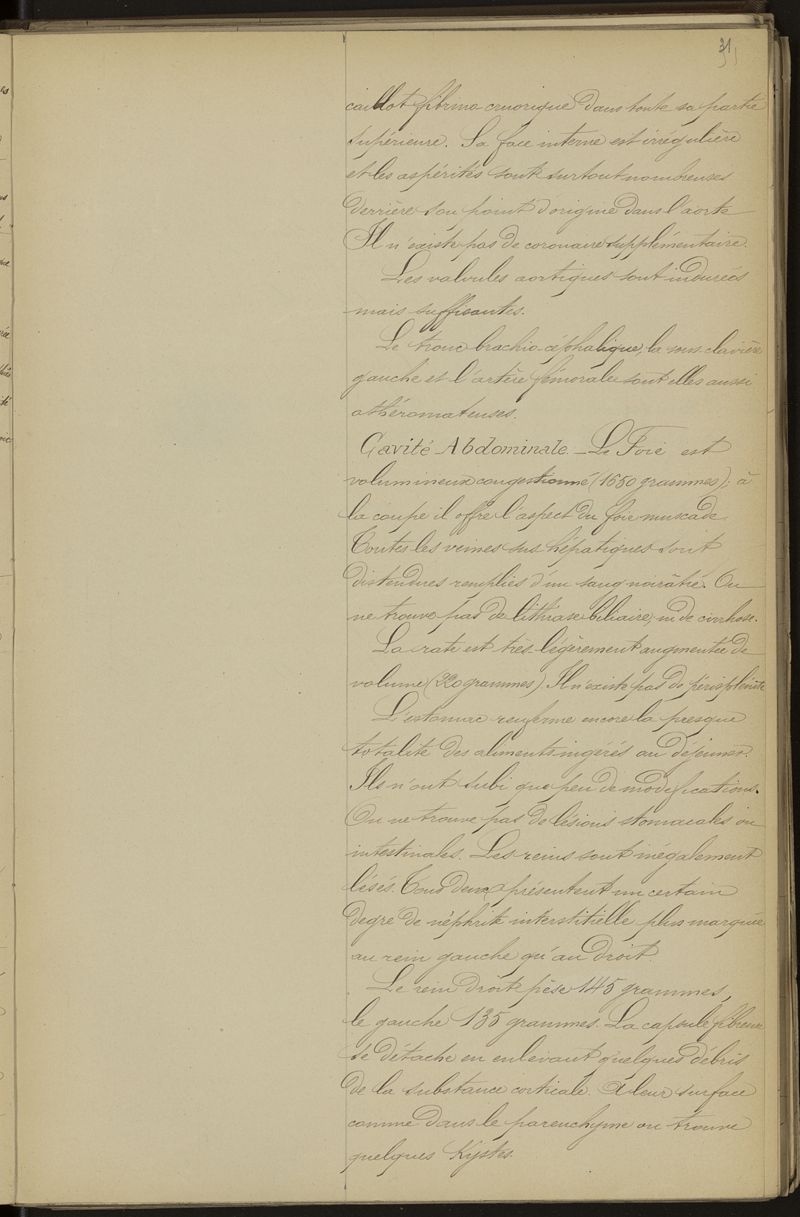 31
caillot fibrino-cruorique dans toute sa partie
supérieure. Sa face interne est irrégulière
et les aspérités sont surtout nombreuses
derrière son point d'origine dans l'aorte
Il n'existe pas de coronaire supplémentaire.
Les valvules aortiques sont indurées
mais suffisantes.
Le tronc brachio-céphalique, la sous clavière
gauche et l'artère fémorale sont elles aussi
athéromateuses.
Cavité Abdominale. _ Le Foie est
volumineux congestionné (1550 grammes); à
la coupe il offre l'aspect du foie muscade
Toutes les veines sus hépatiques sont
distendues remplies d'un sang noirâtre. On
ne trouve pas de lithiase biliaire, ni de cirrhose.
La rate est très légèrement augmentée de
volume (220 grammes). Il n'existe pas de périsplénite
L'estomac renferme encore la presque
totalité des aliments ingérés au déjeuner.
Ils n'ont subi que peu de modifications.
On ne trouve pas de lésions stomacales ou
intestinales. Les reins sont inégalement
lésés. Tous deux présentent un certain
degré de néphrite interstitielle plus marquée
au rein gauche qu'au droit.
Le rein droit pèse 145 grammes,
le gauche 135 grammes. La capsule fibreuse
se détache en enlevant quelques débris
de la substance corticale. A leur surface
comme dans le parenchyme on trouve
quelques Kystes.